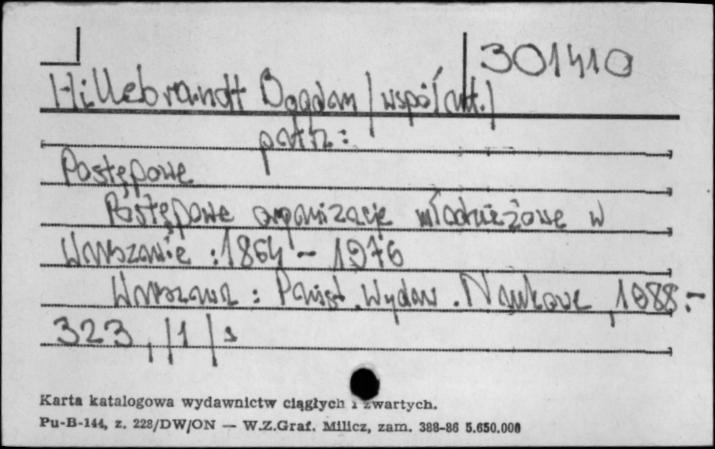 301410
Hillebrandt Bogdan /współaut./
patrz:
Postępowe
Postępowe organizacje młodzieżowe w
Warszawie : 1864 - 1976
Warszawa : Państ. Wydaw. Naukowe, 1988.-
323, /1/ s
Karta katalogowa wydawnictw ciągłych i zwartych.
Pu-B-144, z. 228/DW/ON — W.Z.Graf. Milicz, zam. 388-86 5.650.000